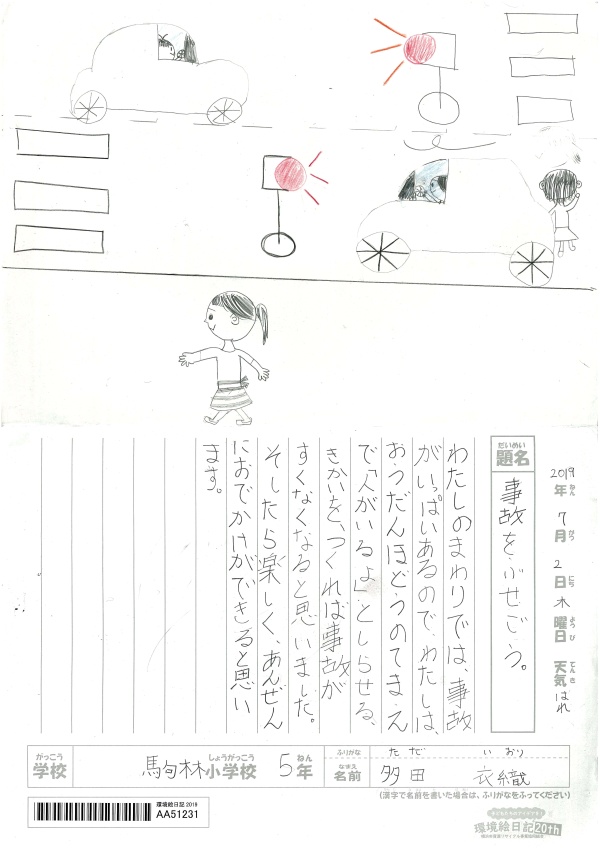 2019年ねん7月がつ2日にち木曜日ようび 天気てんきはれ
だいめい
題名
事故をふせごう。
わたしのまわりでは、事故
がいっぱいあるので、わたしは、
おうだんほどうのてまえ
で「人がいるよ」としらせる、
きかいを、つくれば事故が
すくなくなると思いました。
そしたら楽しく、あんぜん
におでかけができると思い
ます。
がっこう
学校
馬句林小学校しょうがっこう 5年ねん
ふりがな ただ いおり
なまえ
名前 多田 衣織
(漢字で名前を書いた場合は、ふりがなをふってください)
環境絵日記2019
AA51231
環境絵日記20th